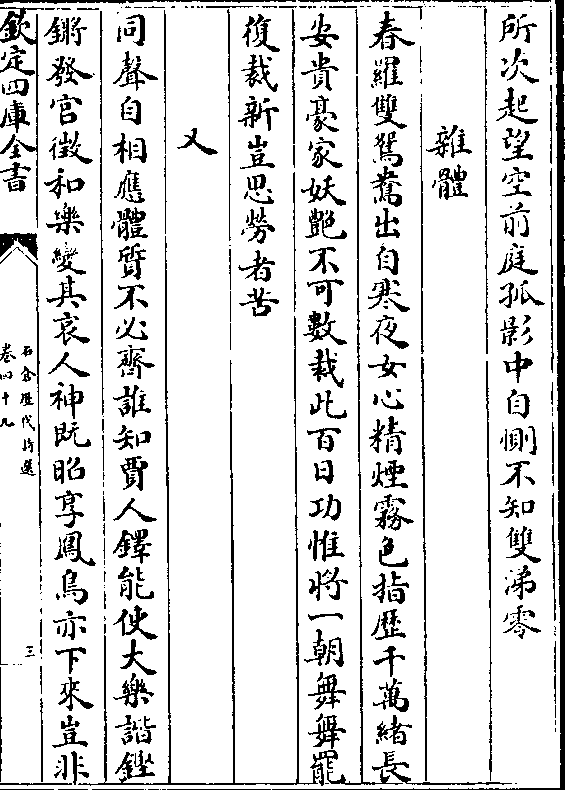 所次起望空前庭孤影中自惻不知雙涕零
雜體
春羅雙鴛鴦出自寒夜女心精煙霧色指歴千萬緒長
安貴豪家妖艶不可數裁此百日功惟將一朝舞舞罷
復裁新豈思勞者苦
又
同聲自相應體質不必齊誰知賈人鐸能使大樂諧鏗
鏘發宮徵和樂變其哀人神既昭享鳳鳥亦下來豈非
欽定四庫全書
石倉歴代詩選
卷四十九
三